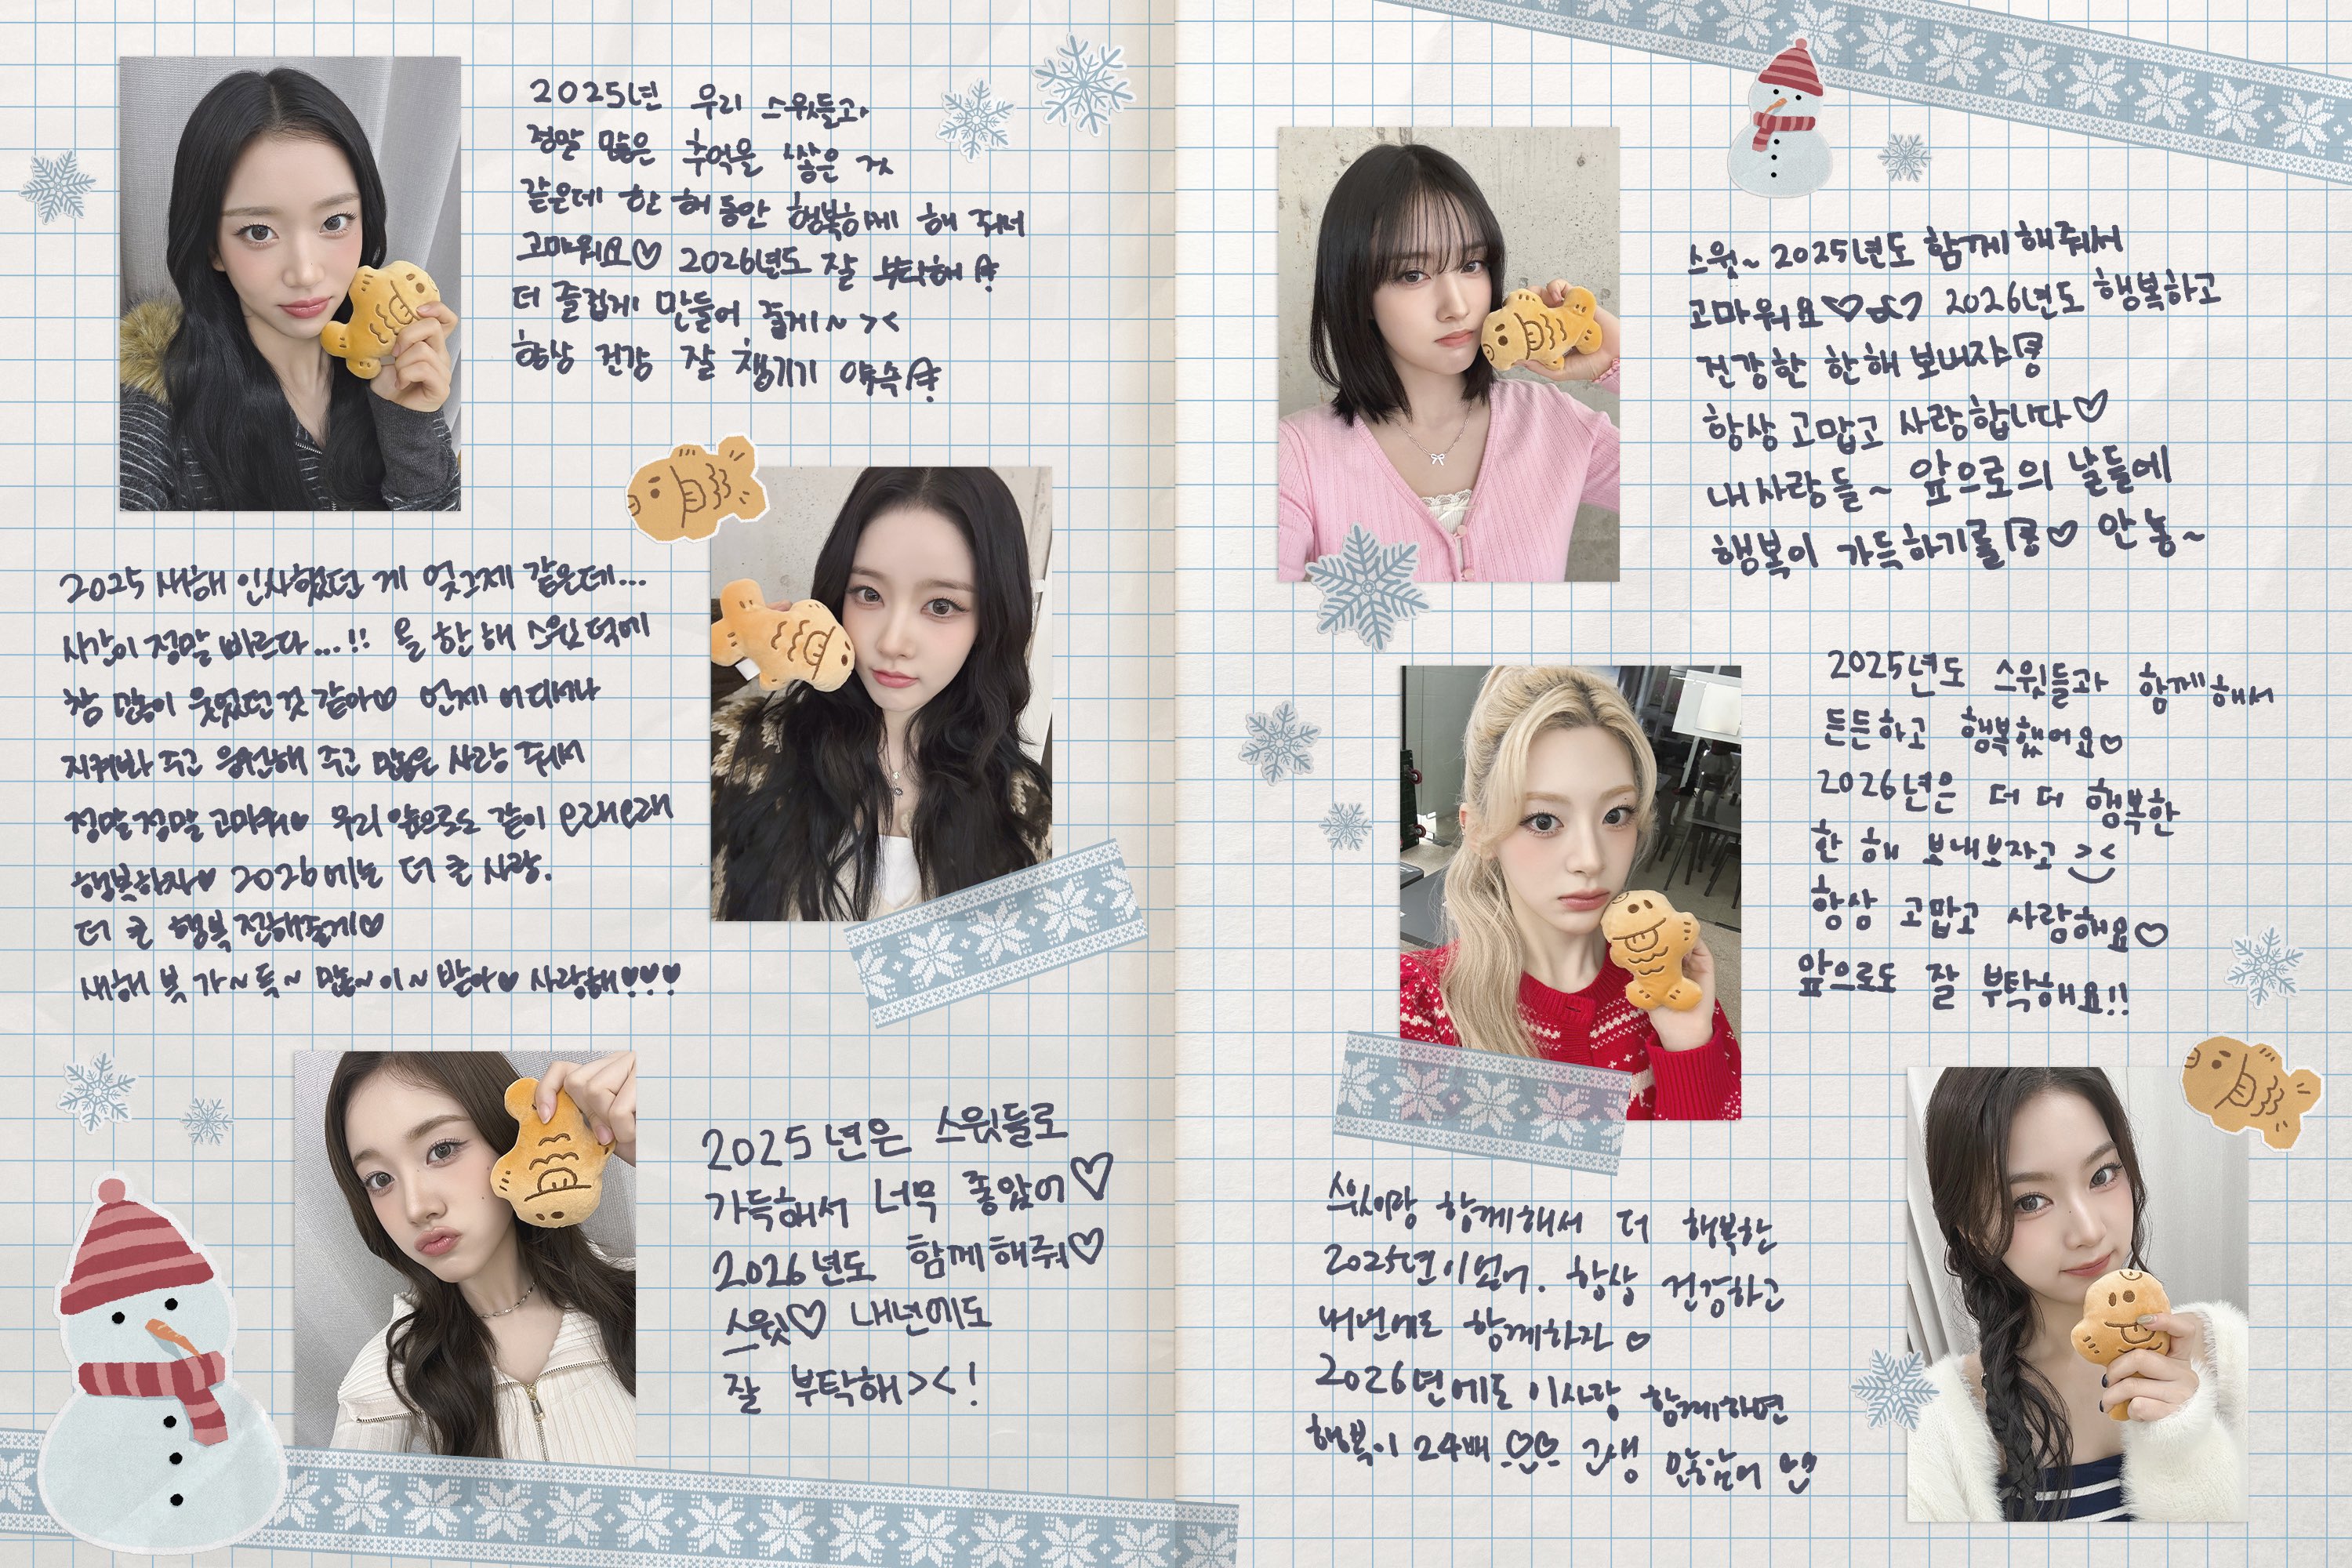 2025년 우리 스윗들과
정말 많은 추억을 쌓은 거
같은데 한 해 동안 행복하게 해 줘서
고마워요♡ 2026년도 잘 부탁해
더 즐겁게 만들어 줄게~ ><
항상 건강 잘 챙기기 약속
2025 새해 인사했던 게 엊그제 같은데...
시간이 정말 빠르다...!! 올 한 해 스윗 덕에
참 많이 웃었던 것 같아♡ 언제 어디서나
지켜봐 주고 응원해 주고 많은 사랑 줘서
정말정말 고마워♥ 우리 앞으로도 같이 오래오래
행복하자♥ 2026에는 더 큰 사랑.
더 큰 행복 전해줄게♡
새해 복 가~득~ 많~이~ 받아♥ 사랑해!♥♥♥
2025년은 스윗들로
가득해서 너무 좋았어♡
2026년도 함께해줘♡
스윗♡ 내년에도
잘 부탁해><!
스윗~ 2025년도 함께 해줘서
고마워요♡ 2026년도 행복하고
건강한 한해 보내자
항상 고맙고 사랑합니다♡
내사랑들~ 앞으로의 날들에
행복이 가득하기를 ♡ 안농~
2025년도 스윗들과 함께해서
든든하고 행복했어요♡
2026년은 더 더 행복한
한 해 보내보자고 ><
항상 고맙고 사랑해요♡
앞으로도 잘 부탁해요!!
스윗이랑 함께해서 더 행복한
2025년이었어. 항상 건강하고
내년에도 함께하자♡
2026년에도 이사랑 함께하면
행복이 24배 ♡♡ 고생 많았어